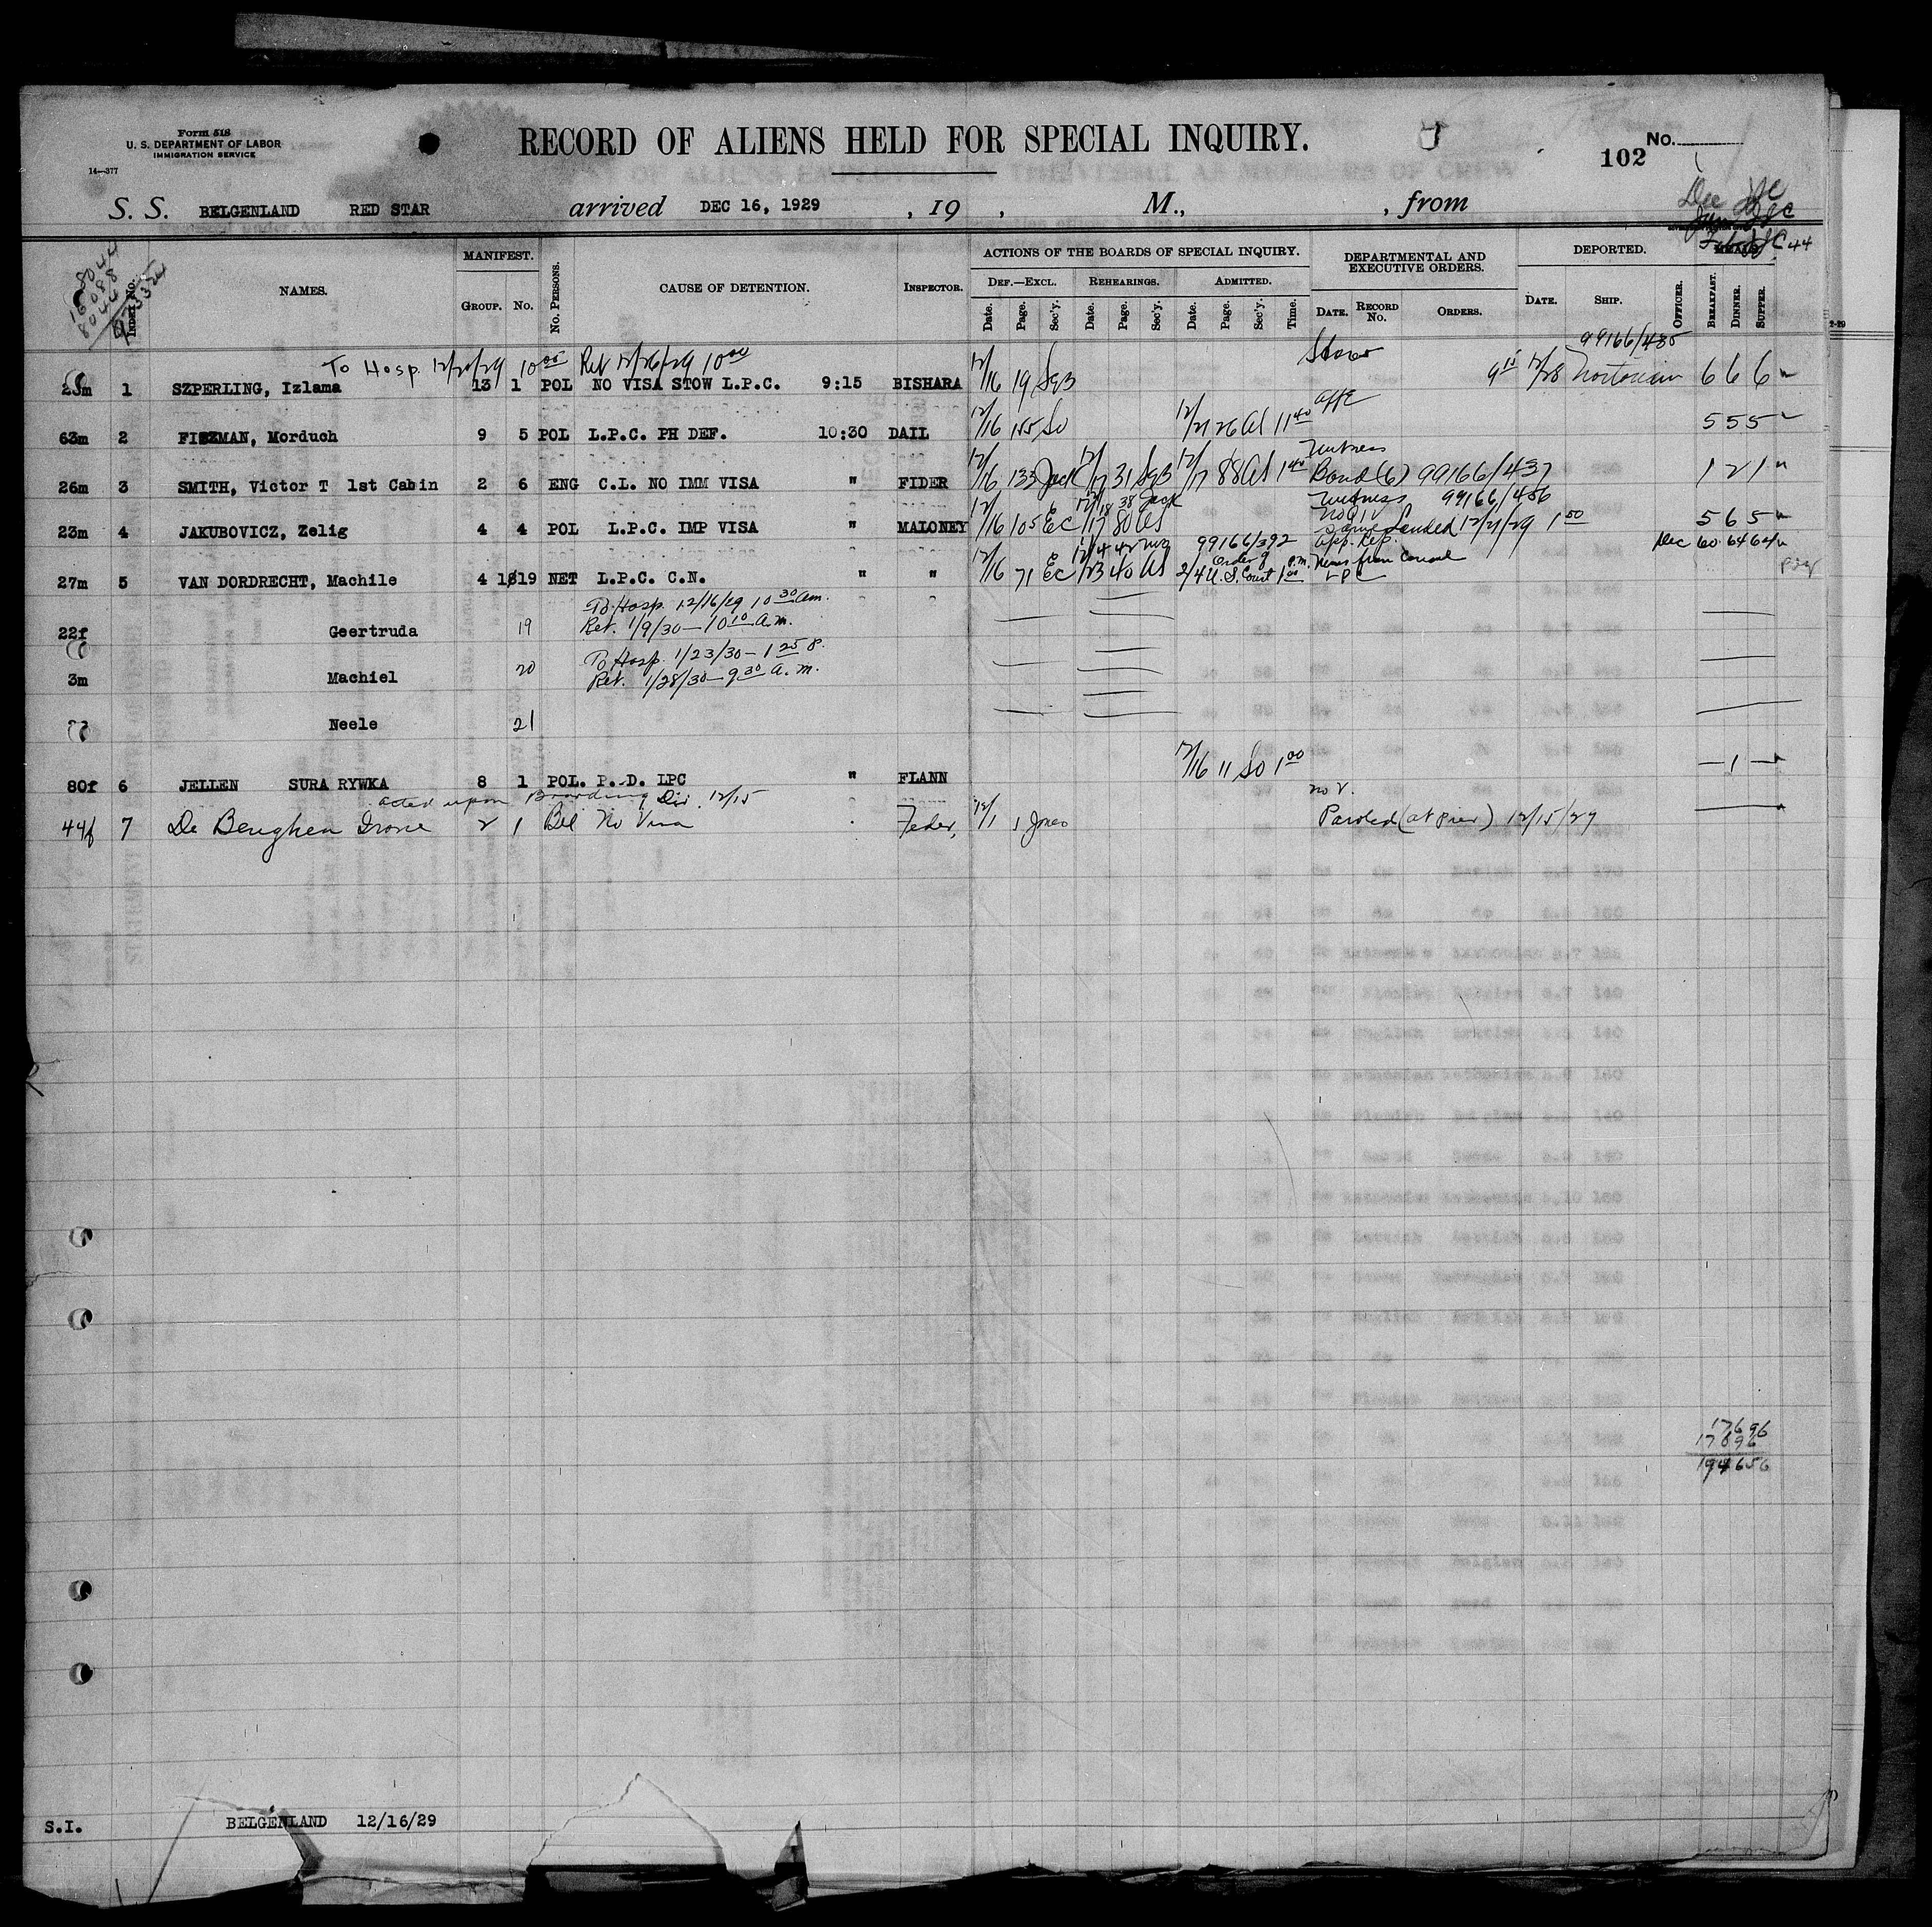 Form 518
U. S. DEPARTMENT OF LABOR
IMMIGRATION SERVICE
14—377
RECORD OF ALIENS HELD FOR SPECIAL INQUIRY.
No.
102
S. S. BELGENLAND RED STAR arrived DEC 16, 1929 , 19 , M., , from
INDEX No.
NAMES.
MANIFEST.
GROUP. No.
No. PERSONS.
CAUSE OF DETENTION.
INSPECTOR.
ACTIONS OF THE BOARDS OF SPECIAL INQUIRY.
DEF.—EXCL. REHEARINGS. ADMITTED.
Date. Page. Sec'y. Date. Page. Sec'y. Date. Page. Sec'y. Time.
DEPARTMENTAL AND EXECUTIVE ORDERS.
DATE. RECORD No. ORDERS.
DEPORTED.
DATE. SHIP. OFFICER.
BREAKFAST. DINNER. SUPPER.
To Hosp. 12/20/29 10 00 Ret 12/26/29 10 00 99166/485
23m 1 SZPERLING, Izlama 13 1 POL NO VISA STOW L.P.C. 9:15 BISHARA 12/16 19 SgB 9 15 12/28 6 6 6
63m 2 FISZMAN, Morduch 9 5 POL L.P.C. PH DEF. 10:30 DAIL 12/16 155 So 12/21 26 11 40 5 5 5
Witness
26m 3 SMITH, Victor T 1st Cabin 2 6 ENG C.L. NO IMM VISA " FIDER 12/16 133 Jack 12/17 31 SgB 12/17 88 1 40 Bond (6) 99166/437 1 2 1
12/18 38 Jack Witness 99166/456
23m 4 JAKUBOVICZ, Zelig 4 4 POL L.P.C. IMP VISA " MALONEY 12/16 105 EC 12/17 80 Landed 12/21/29 1 50 5 6 5
99166/392 App. Rep. Dec 60 64 64
27m 5 VAN DORDRECHT, Machile 4 1819 NET L.P.C. C.N. " " 12/16 71 EC 1/23 40 2/4 U.S. Court 1 00 P.M. LPC
To Hosp. 12/16/29 10 30 am.
22f Geertruda 19 Ret. 1/9/30—10 10 a.m.
To Hosp. 1/23/30—1 25 P.
3m Machiel 20 Ret. 1/28/30—9 30 a.m.
Neele 21
80f 6 JELLEN SURA RYWKA 8 1 POL. P.-D. LPC " FLANN 12/16 11 So 1 00 — 1 —
acted upon Boarding Div. 12/15 no V.
44f 7 De Beughen Irone 2 1 Bel No Visa Feder, 12/1 1 Jones Paroled (at pier) 12/15/29
17696
17696
194656
S.I. BELGENLAND 12/16/29